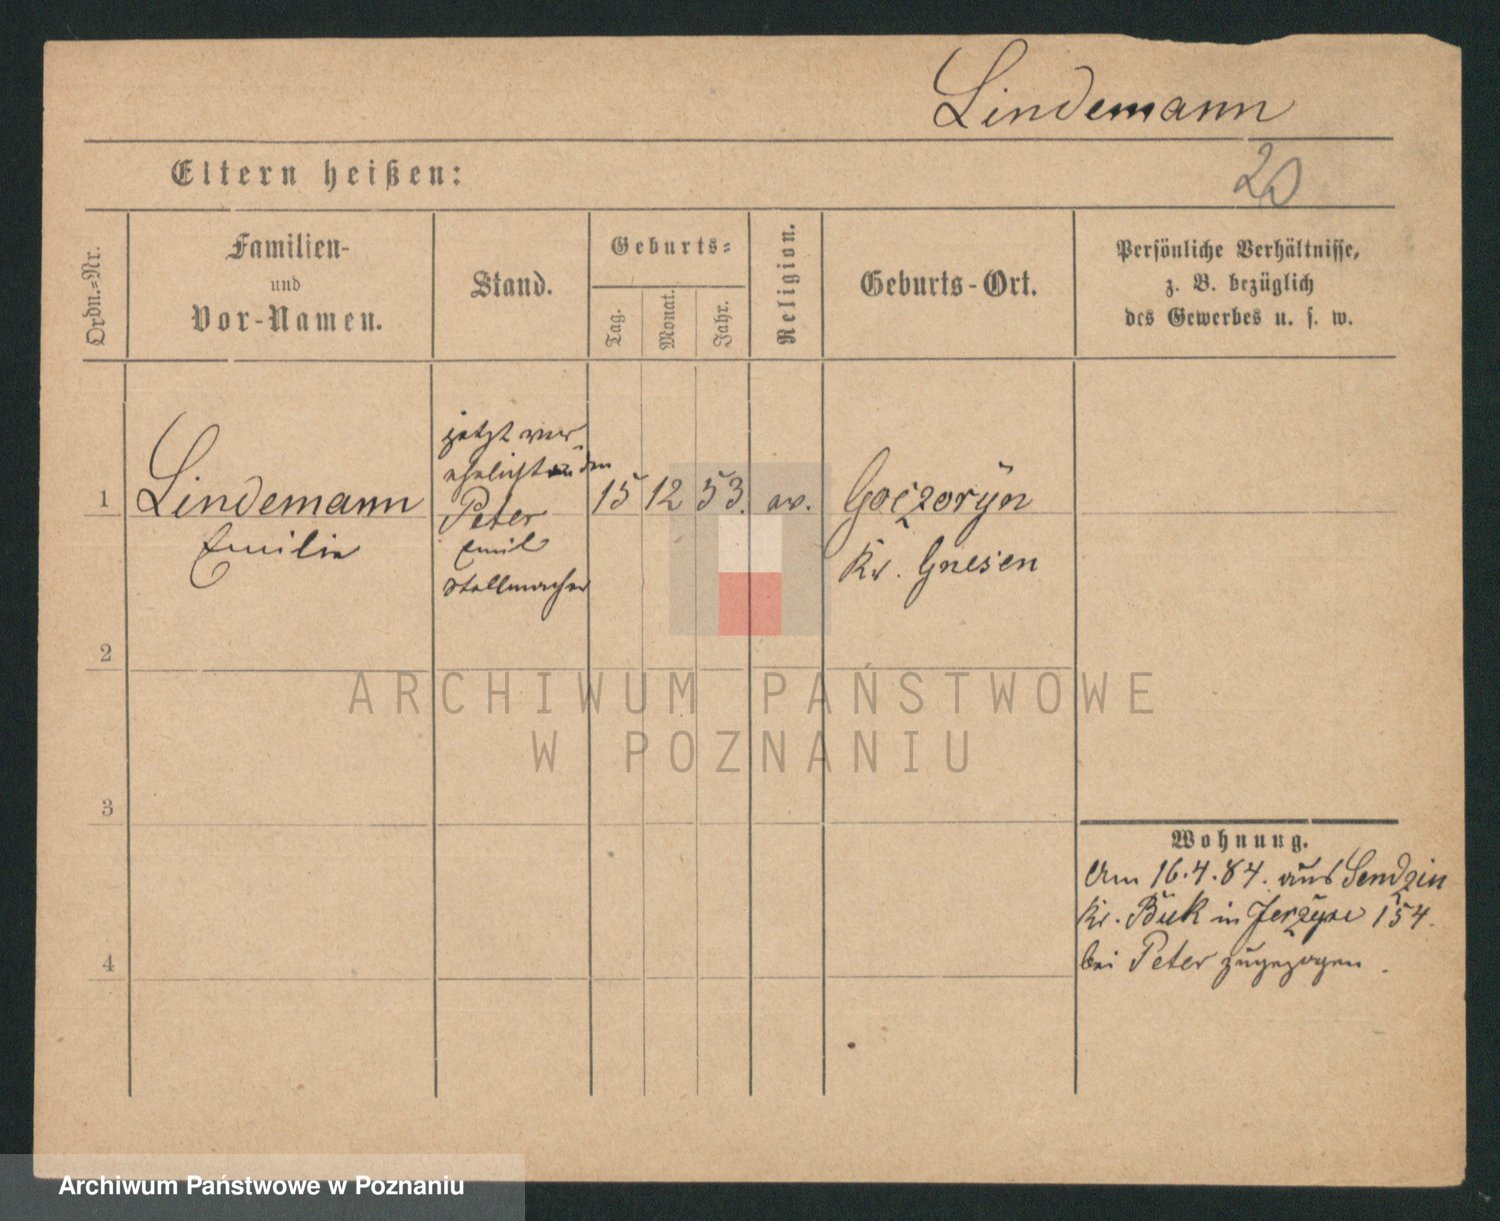 Lindemann
20
Eltern heißen:
Ordn.-Nr.
Familien-
und
Vor-Namen.
Stand.
Geburts-
Tag.
Monat.
Jahr.
Religion.
Geburts-Ort.
Persönliche Verhältnisse,
z. B. bezüglich
des Gewerbes u. s. w.
1
Lindemann
Emilie
jetzt ver-
ehelicht an den
Peter
Emil
Stellmacher
15 12 53. ev.
Goczoryn
Kr. Gnesen
2
3
4
Wohnung.
Am 16.4.84. aus Sendzin
Kr. Buk in Jerzyce 154.
bei Peter zugezogen.
ARCHIWUM PAŃSTWOWE
W POZNANIU
Archiwum Państwowe w Poznaniu